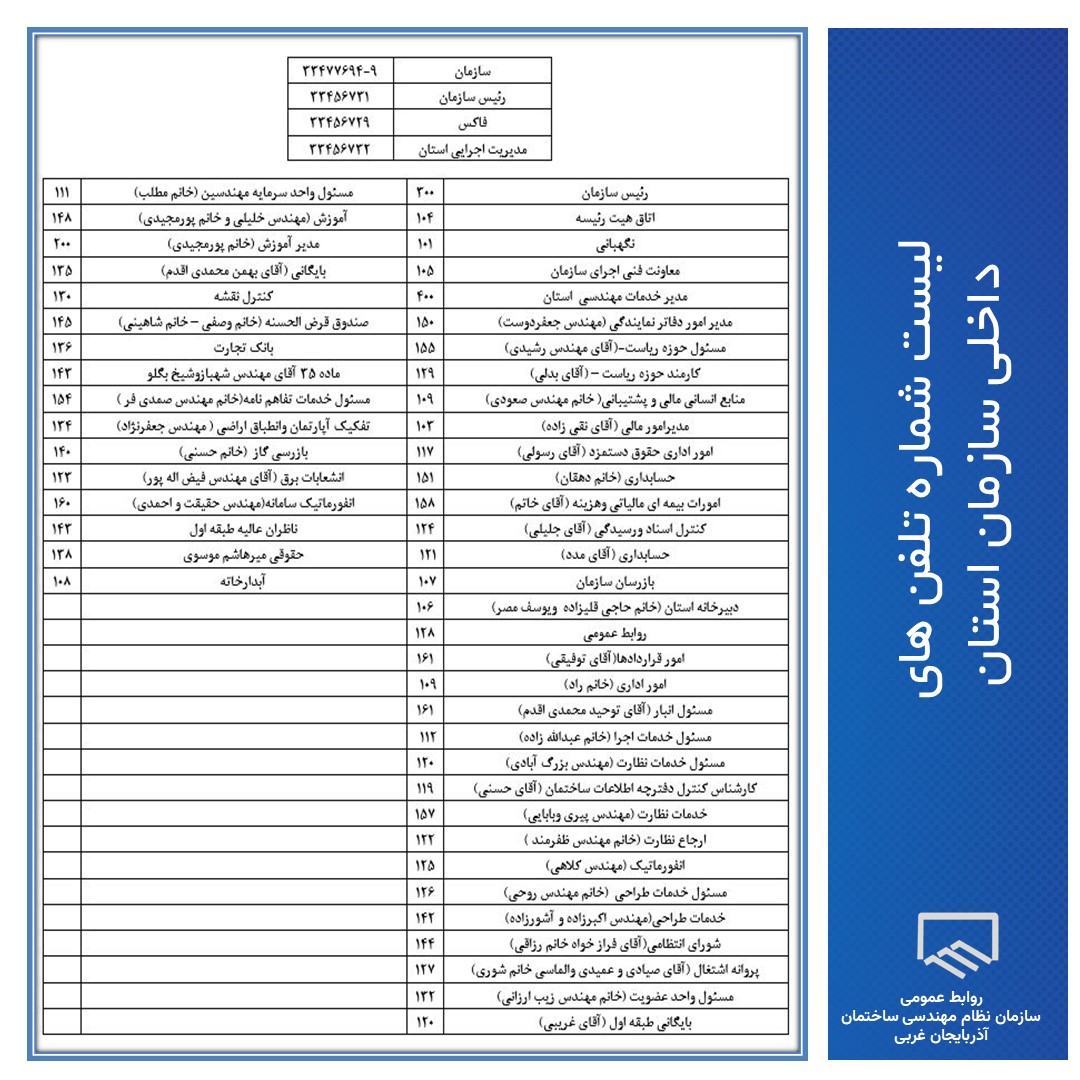 لیست شماره تلفن های
داخلی سازمان استان
سازمان ۳۳۴۷۷۶۹۴-۹
رئیس سازمان ۳۳۴۵۶۷۳۱
فاکس ۳۳۴۵۶۷۲۹
مدیریت اجرایی استان ۳۳۴۵۶۷۳۲
رئیس سازمان ۳۰۰ مسئول واحد سرمایه مهندسین (خانم مطلب) ۱۱۱
اتاق هیت رئیسه ۱۰۴ آموزش (مهندس خلیلی و خانم پورمجیدی) ۱۴۸
نگهبانی ۱۰۱ مدیر آموزش (خانم پورمجیدی) ۲۰۰
معاونت فنی اجرای سازمان ۱۰۵ بایگانی (آقای بهمن محمدی اقدم) ۱۳۵
مدیر خدمات مهندسی استان ۴۰۰ کنترل نقشه ۱۳۰
مدیر امور دفاتر نمایندگی (مهندس جعفردوست) ۱۵۰ صندوق قرض الحسنه (خانم وصفی – خانم شاهینی) ۱۴۵
مسئول حوزه ریاست-(آقای مهندس رشیدی) ۱۵۵ بانک تجارت ۱۳۶
کارمند حوزه ریاست – (آقای بدلی) ۱۲۹ ماده ۳۵ آقای مهندس شهبازوشیخ بگلو ۱۴۳
منابع انسانی مالی و پشتیبانی( خانم مهندس صعودی) ۱۰۹ مسئول خدمات تفاهم نامه(خانم مهندس صمدی فر ) ۱۵۴
مدیرامور مالی (آقای نقی زاده) ۱۰۳ تفکیک آپارتمان وانطباق اراضی ( مهندس جعفرنژاد) ۱۳۴
امور اداری حقوق دستمزد (آقای رسولی) ۱۱۷ بازرسی گاز (خانم حسنی) ۱۴۰
حسابداری (خانم دهقان) ۱۵۱ انشعابات برق (آقای مهندس فیض اله پور) ۱۲۳
امورات بیمه ای مالیاتی وهزینه (آقای خاتم) ۱۵۸ انفورماتیک سامانه(مهندس حقیقت و احمدی) ۱۶۰
کنترل اسناد ورسیدگی (آقای جلیلی) ۱۲۴ ناظران عالیه طبقه اول ۱۴۳
حسابداری (آقای مدد) ۱۲۱ حقوقی میرهاشم موسوی ۱۳۸
بازرسان سازمان ۱۰۷ آبدارخاته ۱۰۸
دبیرخانه استان (خانم حاجی قلیزاده ویوسف مصر) ۱۰۶
روابط عمومی ۱۲۸
امور قراردادها(آقای توفیقی) ۱۶۱
امور اداری (خانم راد) ۱۰۹
مسئول انبار (آقای توحید محمدی اقدم) ۱۶۱
مسئول خدمات اجرا (خانم عبدالله زاده) ۱۱۲
مسئول خدمات نظارت (مهندس بزرگ آبادی) ۱۲۰
کارشناس کنترل دفترچه اطلاعات ساختمان (آقای حسنی) ۱۱۹
خدمات نظارت (مهندس پیری وبابایی) ۱۵۷
ارجاع نظارت (خانم مهندس ظفرمند ) ۱۲۲
انفورماتیک (مهندس کلاهی) ۱۲۵
مسئول خدمات طراحی (خانم مهندس روحی) ۱۲۶
خدمات طراحی(مهندس اکبرزاده و آشورزاده) ۱۴۲
شورای انتظامی(آقای فراز خواه خانم رزاقی) ۱۴۴
پروانه اشتغال (آقای صیادی و عمیدی والماسی خانم شوری) ۱۲۷
مسئول واحد عضویت (خانم مهندس زیب ارزانی) ۱۳۲
بایگانی طبقه اول (آقای غریبی) ۱۲۰
روابط عمومی
سازمان نظام مهندسی ساختمان
آذربایجان غربی